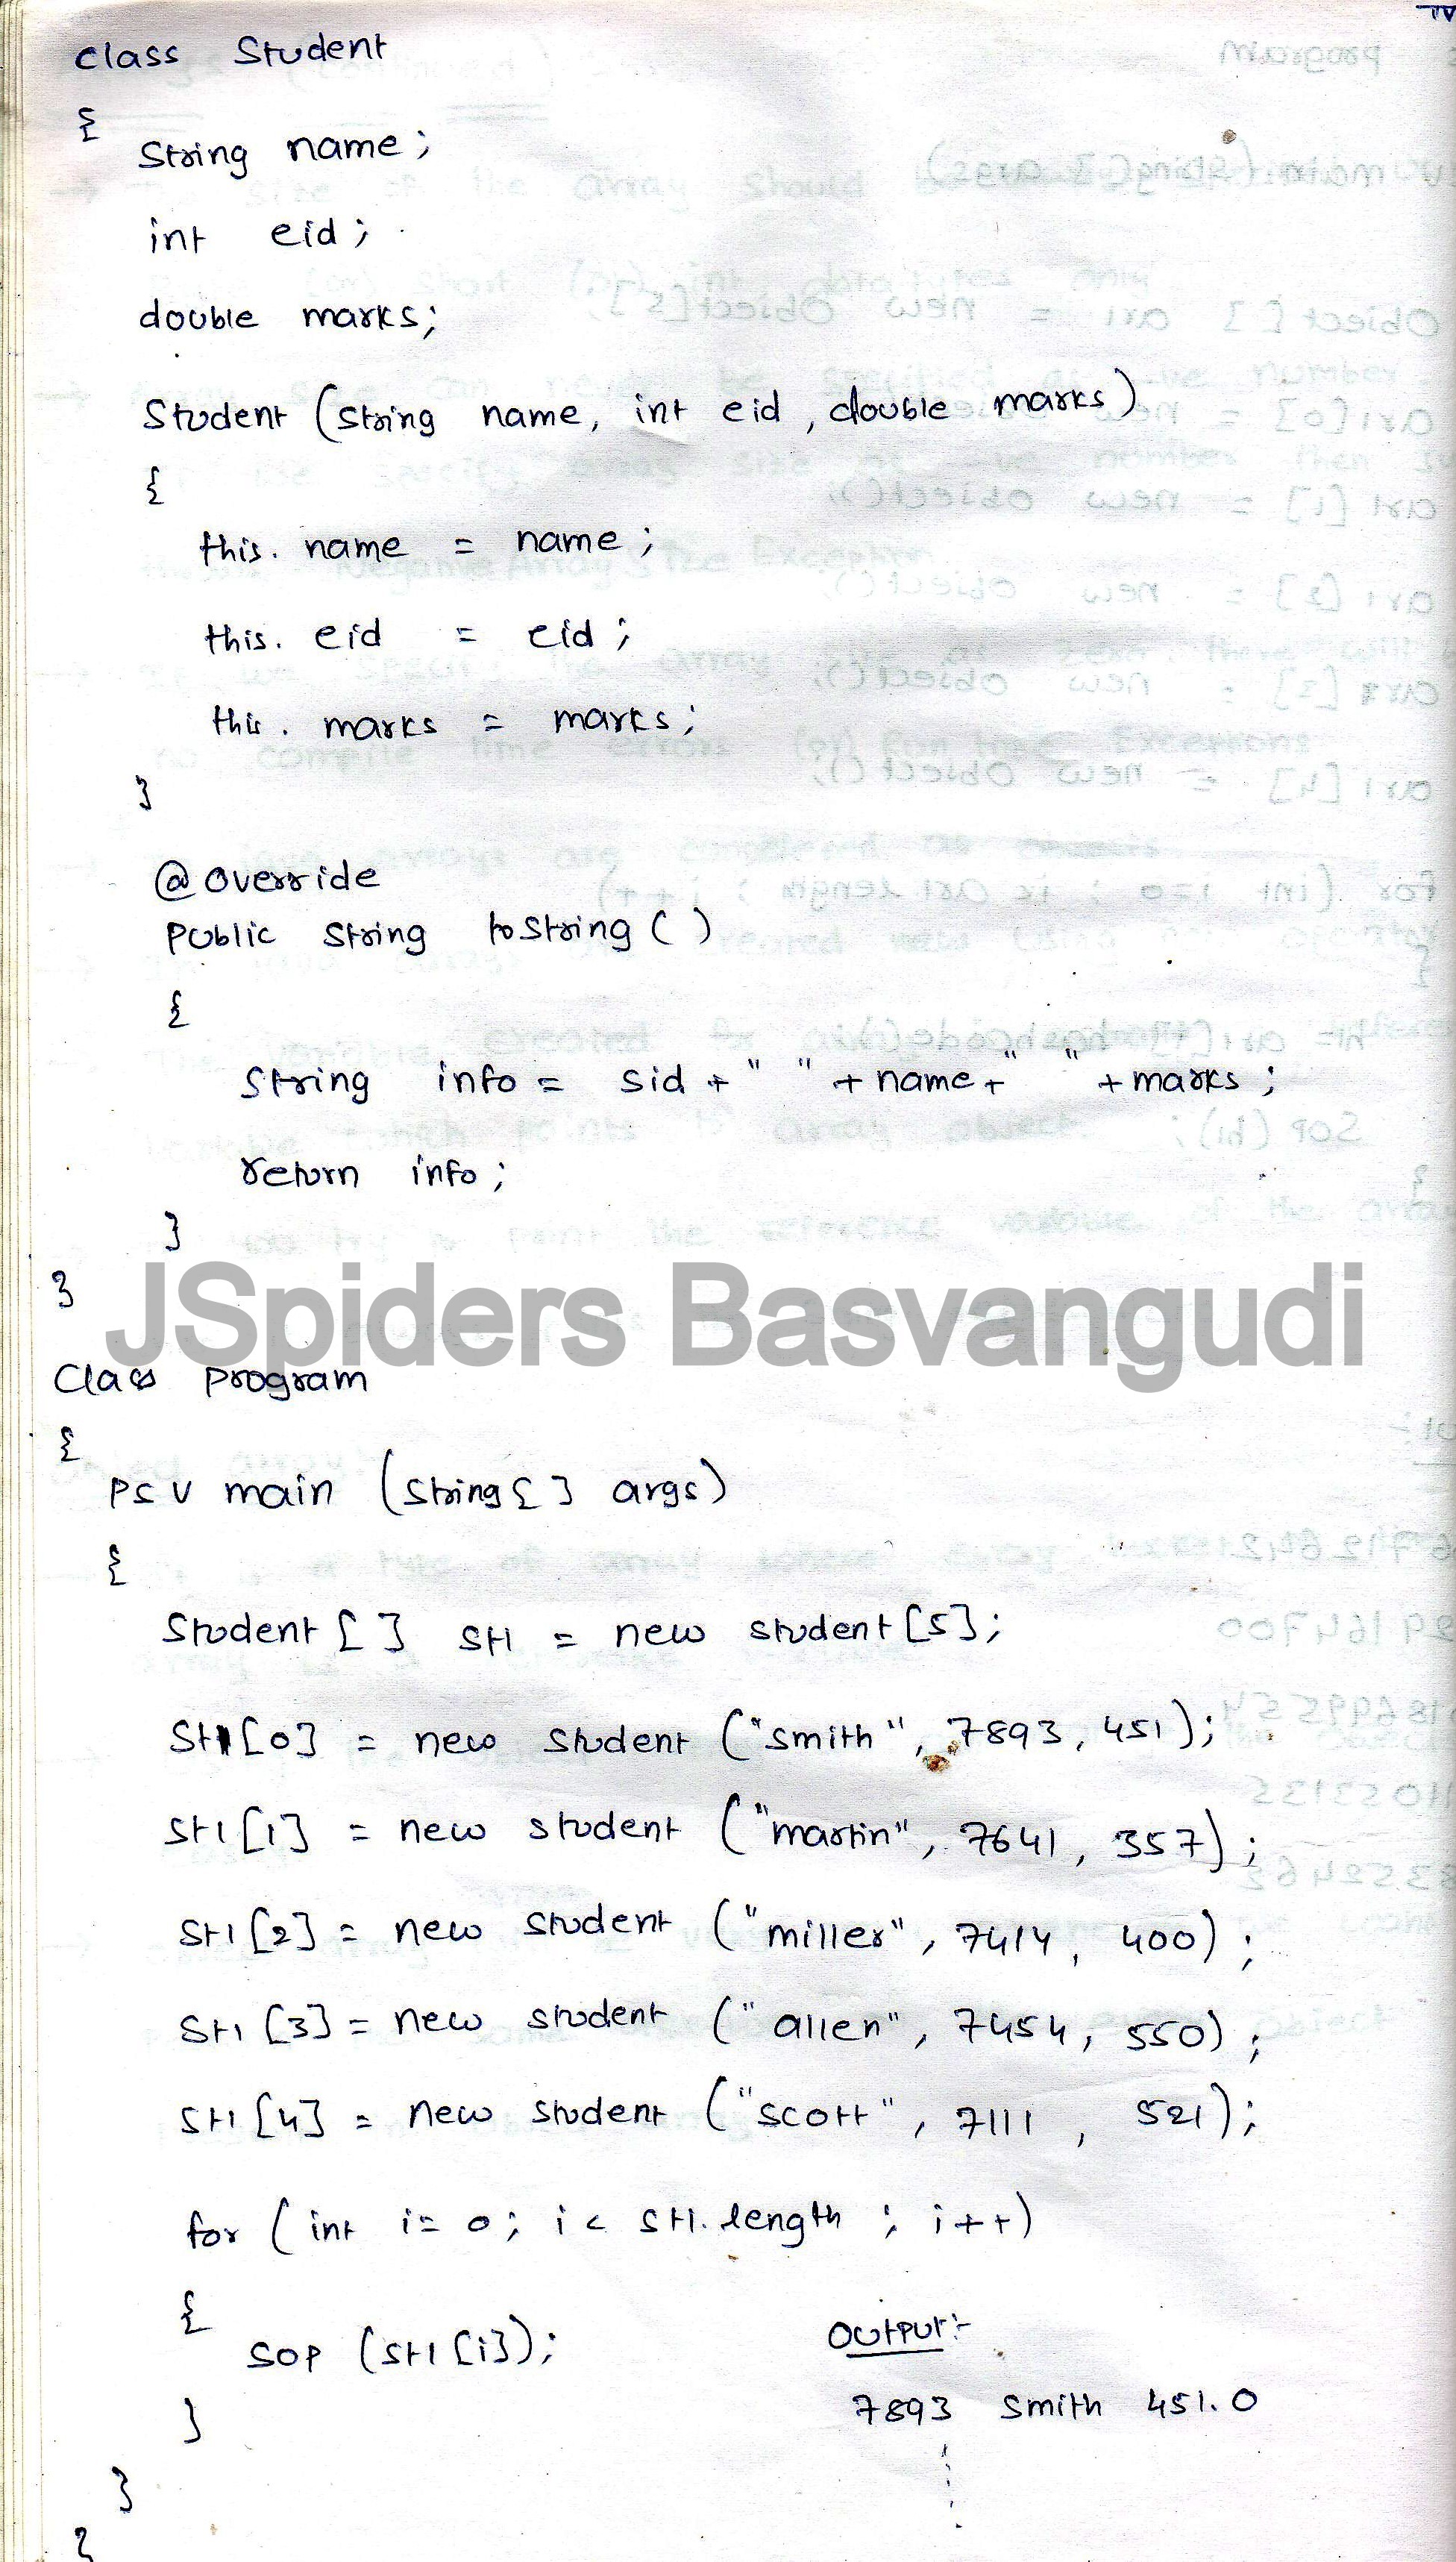 class Student
{
String name;
int eid;
double marks;
Student (String name, int eid, double marks)
{
this. name = name;
this. eid = eid;
this. marks = marks;
}
@override
Public String toString ( )
{
String info = sid + " " + name + " " + marks;
return info;
}
}
JSpiders Basvangudi
Class Program
{
PSV main (String [ ] args)
{
Student [ ] St1 = new student [5];
St1 [0] = new student ("smith", 7893, 451);
St1 [1] = new student ("martin", 7641, 357);
St1 [2] = new student ("miller", 7414, 400);
St1 [3] = new student ("allen", 7454, 550);
St1 [4] = new student ("scott", 7111, 521);
for (int i = 0; i < St1. length; i++)
{
SOP (St1 [i]);
}
}
}
Output:-
7893 Smith 451.0